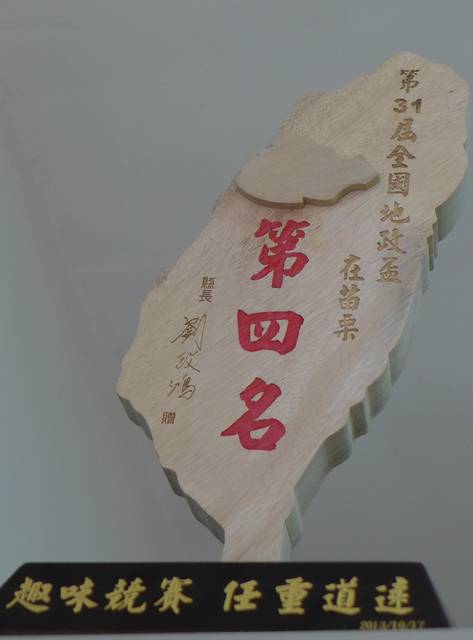 第31屆全國地政盃
在苗栗
第四名
縣長 劉政鴻 贈
趣味競賽 任重道遠
2013/10/17